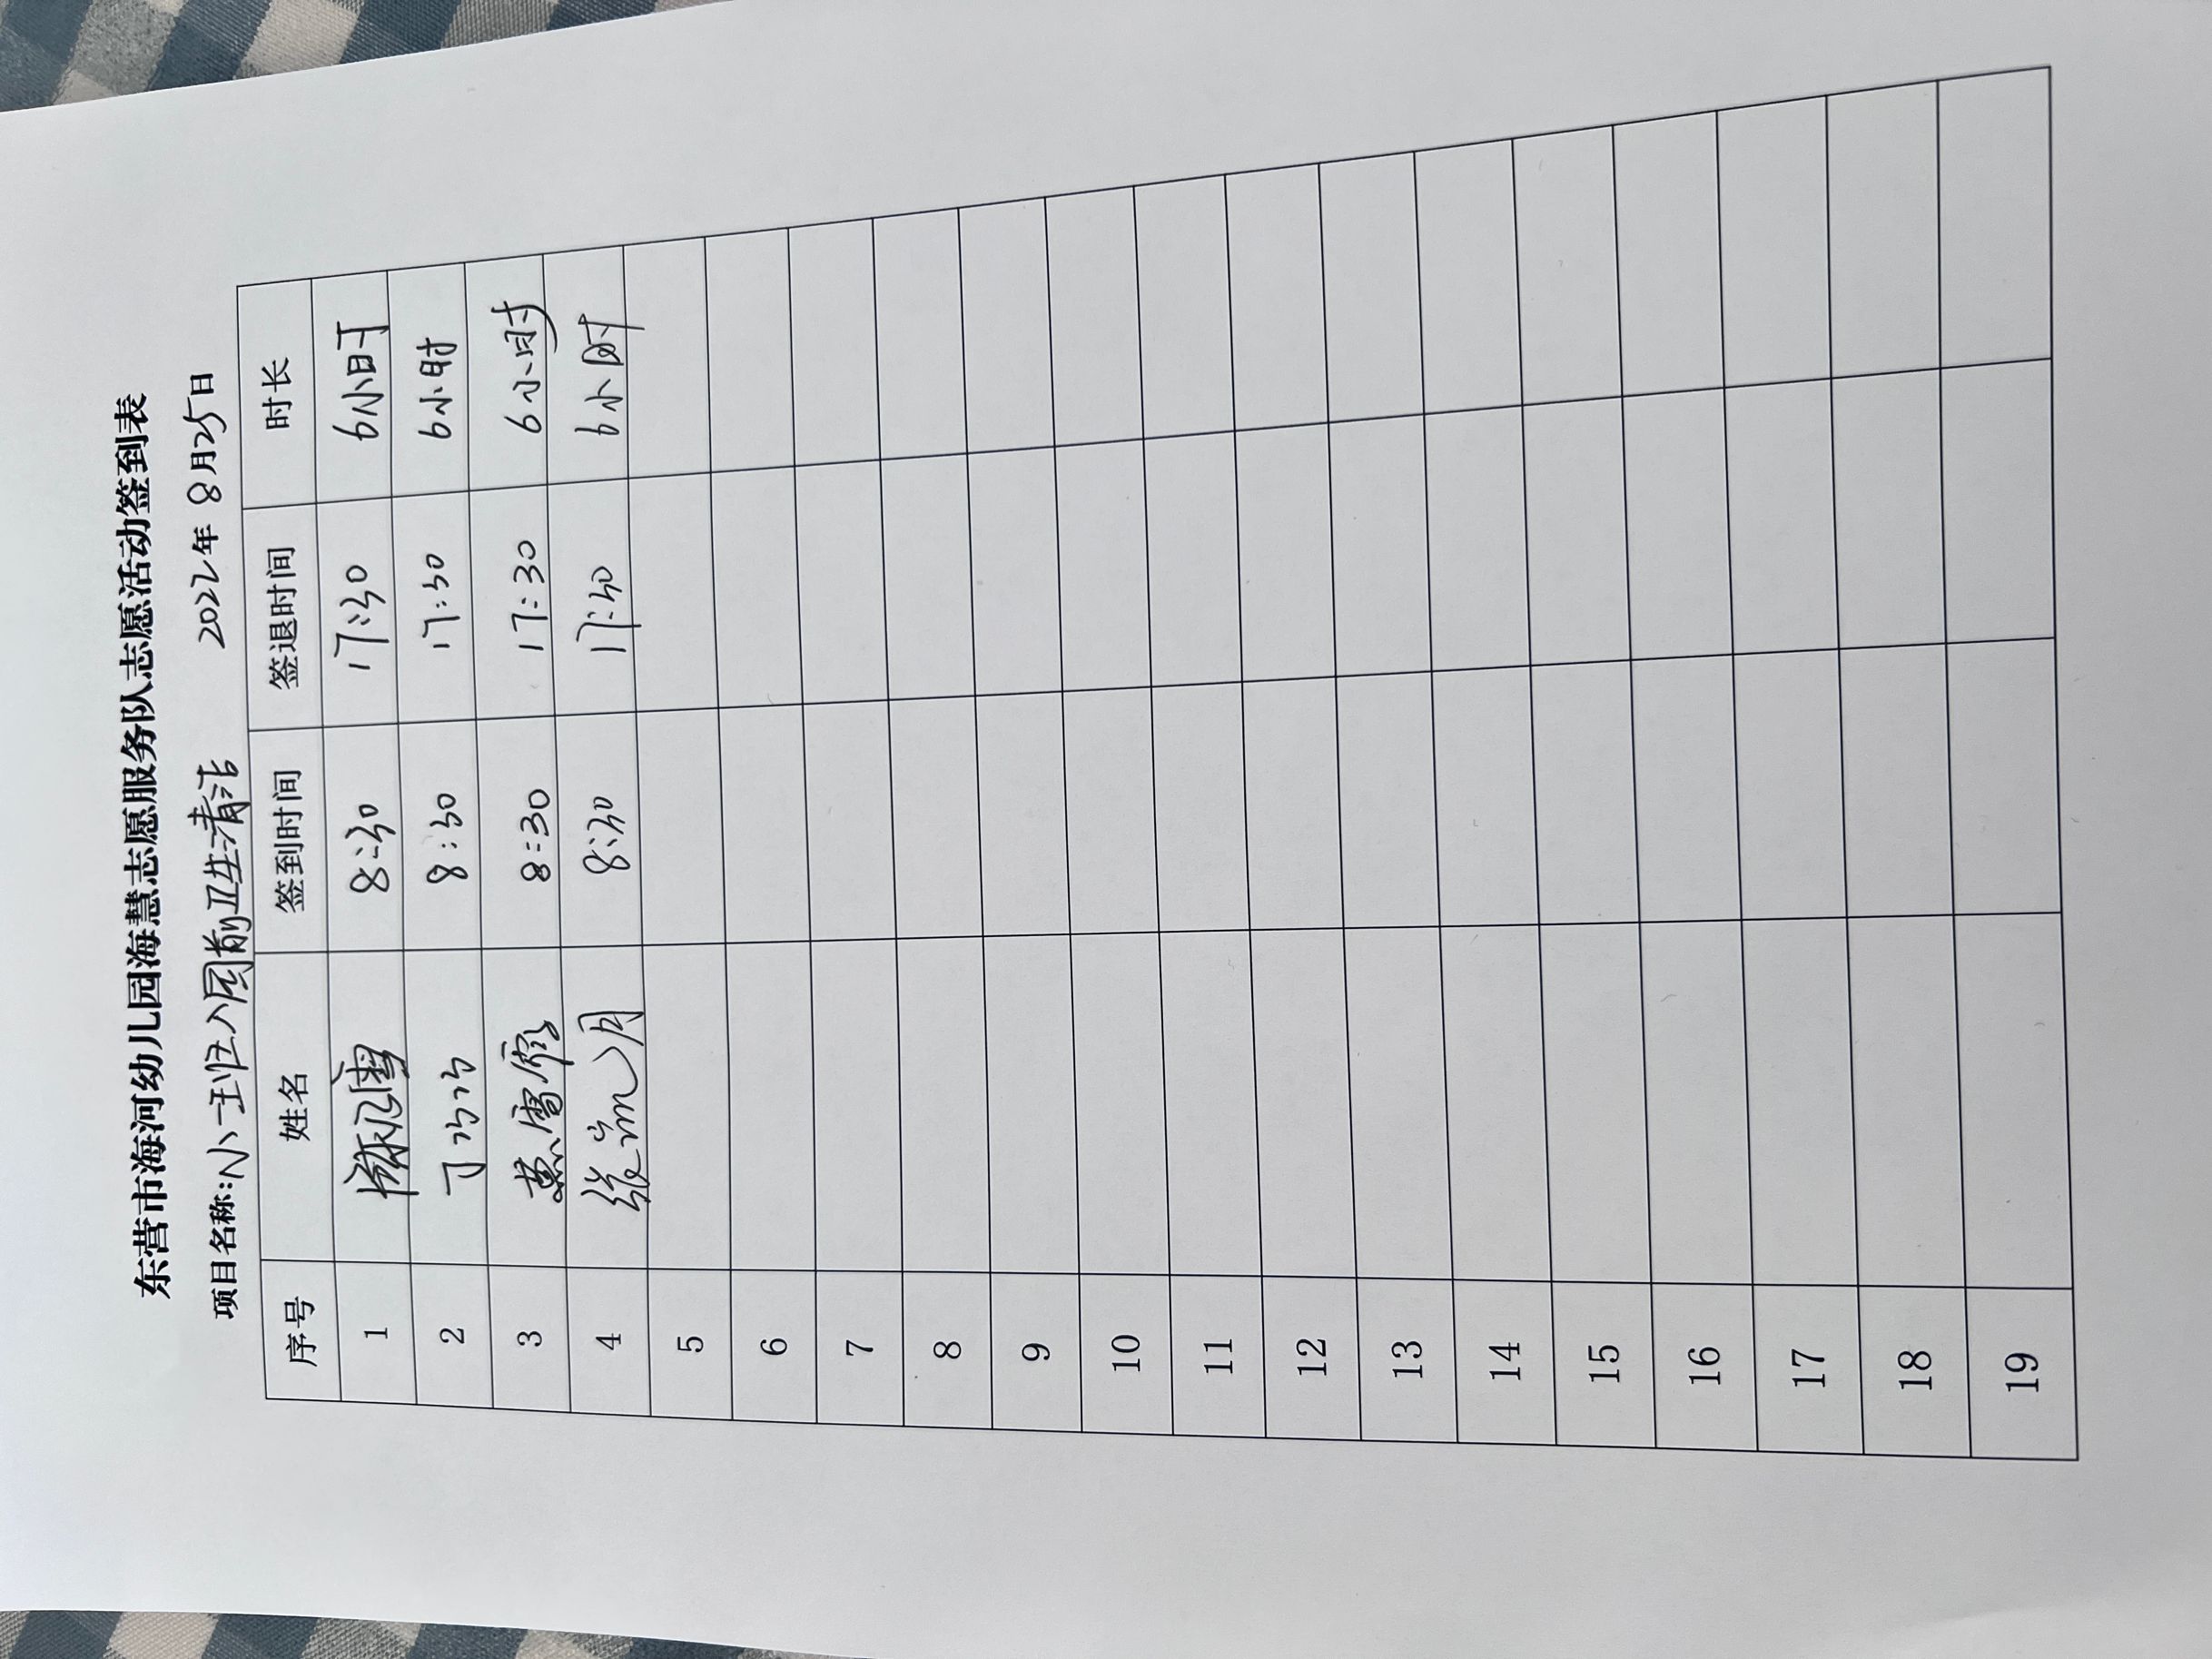 东营市海河幼儿园海慧志愿服务队志愿活动签到表
项目名称:小班入园前卫生清洁 2022年 8月25日
序号 姓名 签到时间 签退时间 时长
1 8:30 17:30 6小时
2 8:30 17:30 6小时
3 8:30 17:30 6小时
4 8:30 17:30 6小时
5
6
7
8
9
10
11
12
13
14
15
16
17
18
19